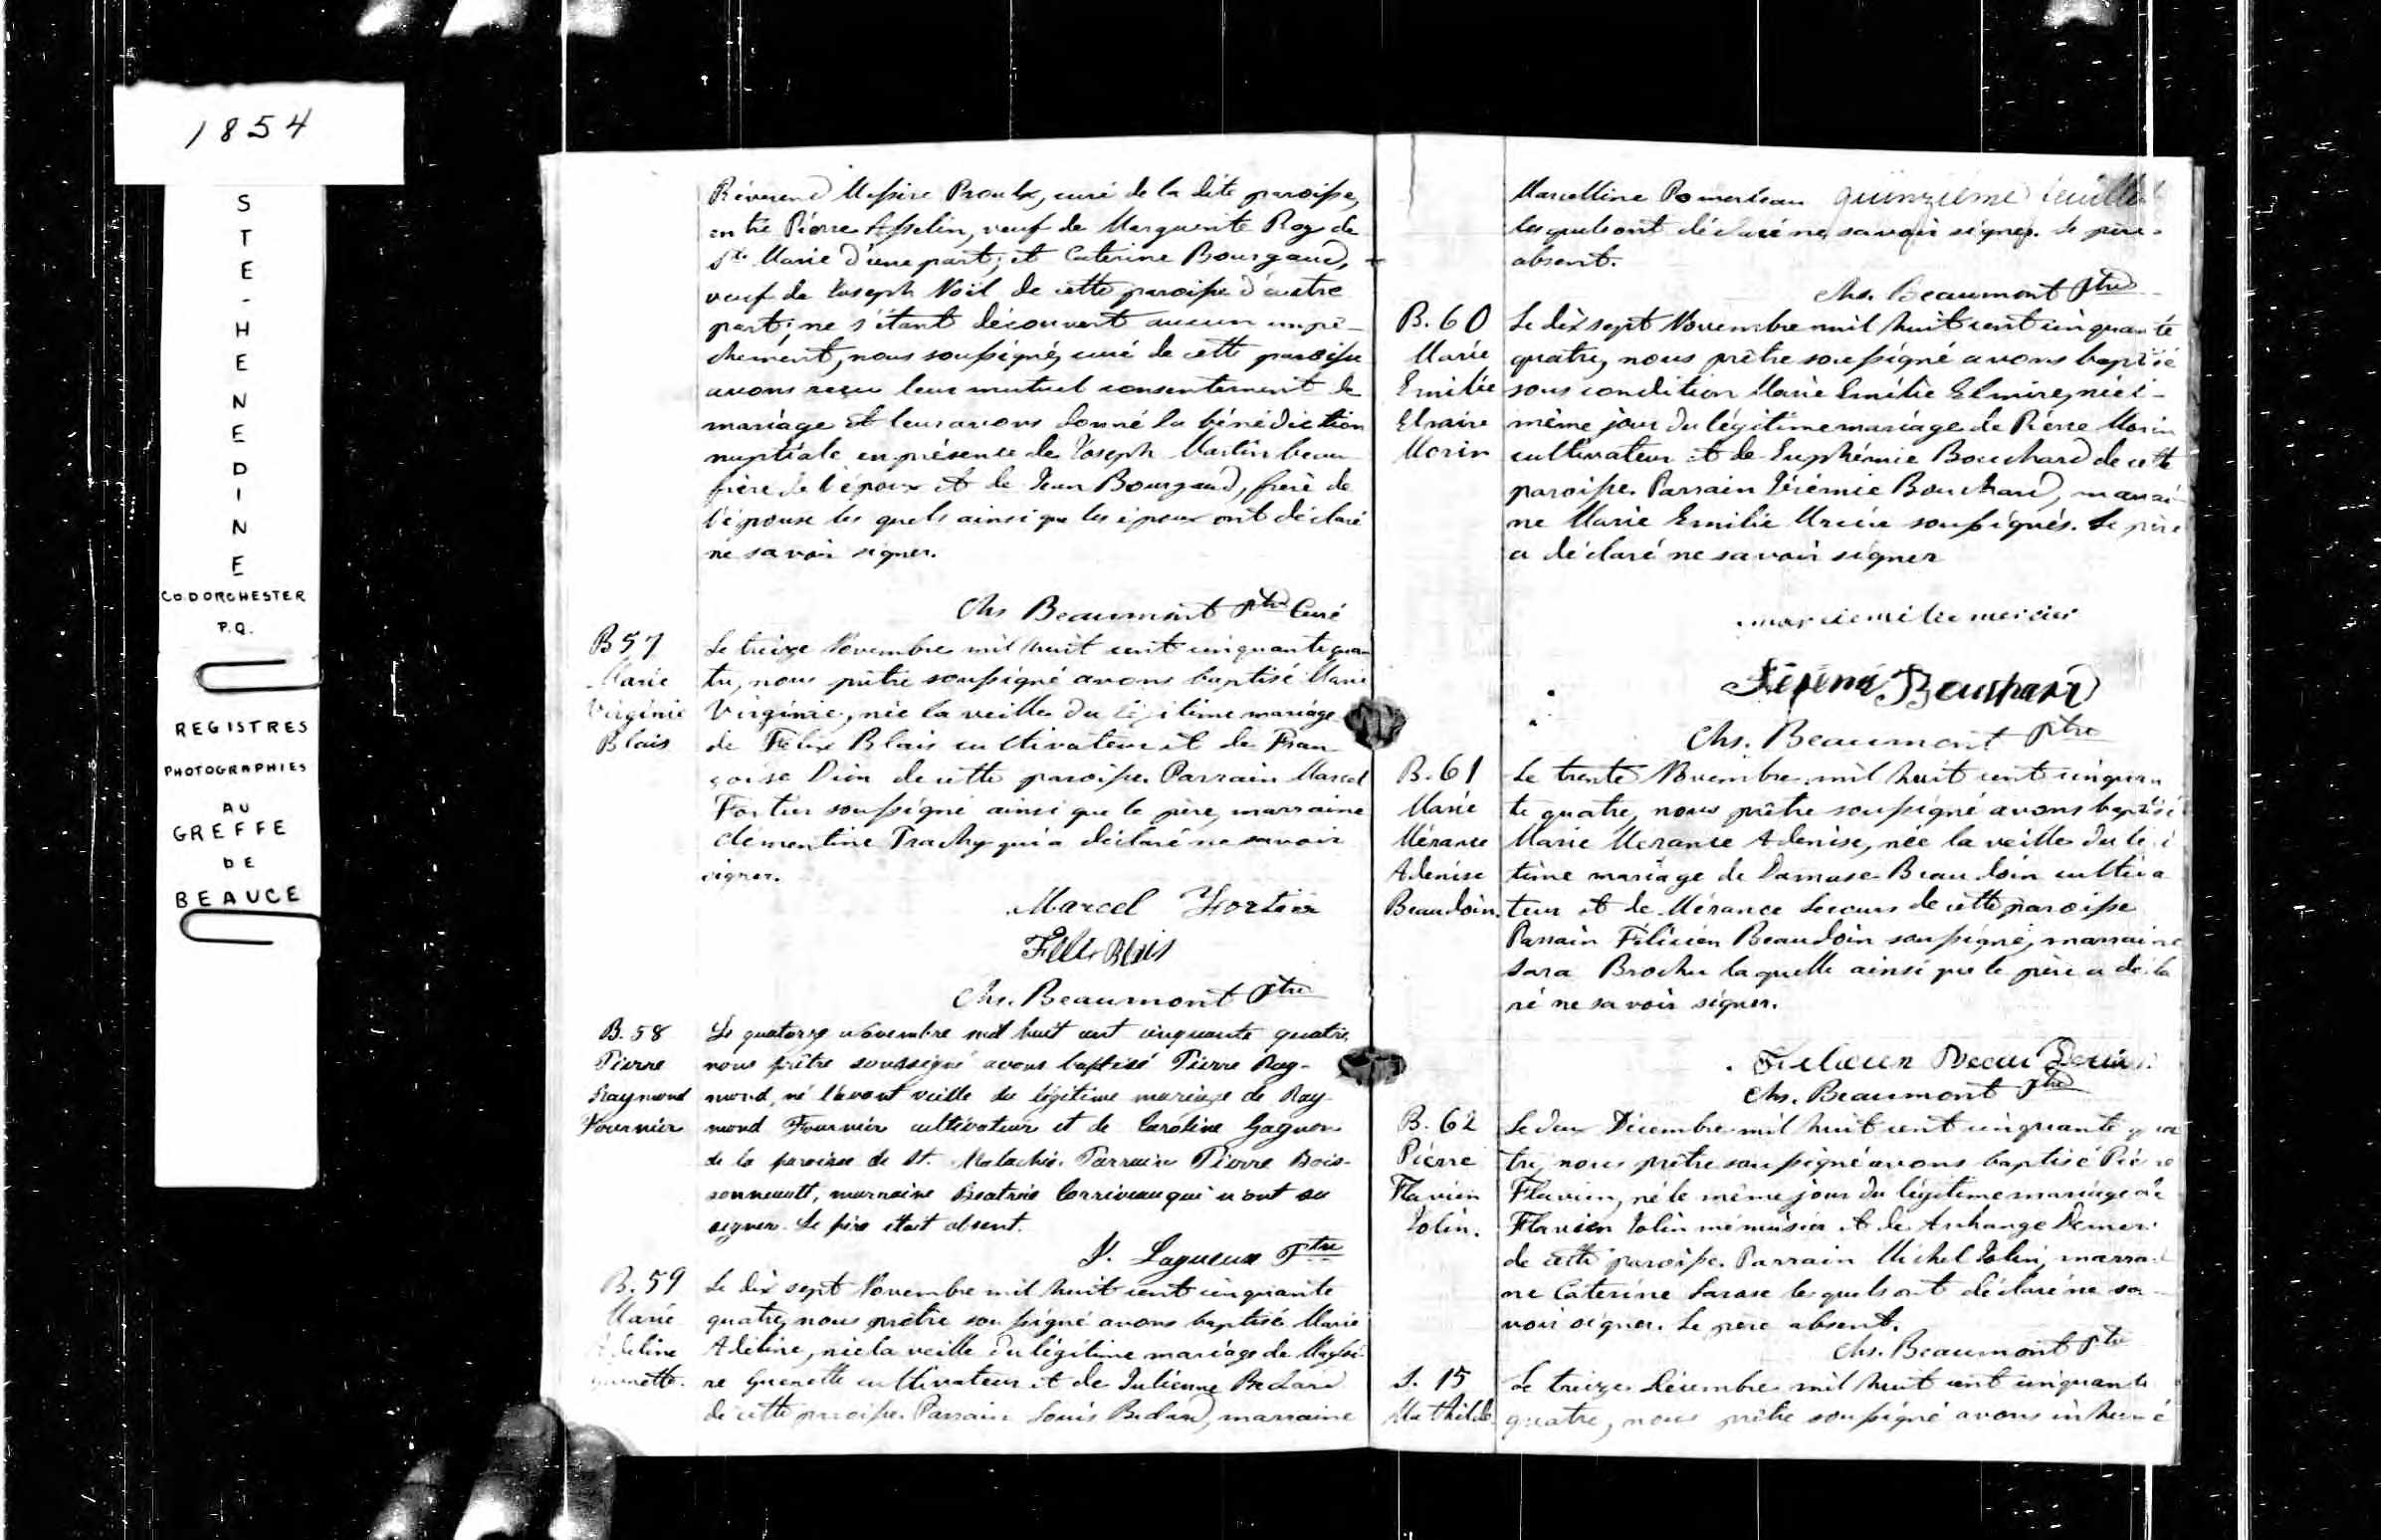 1854
S
T
E
-
H
E
N
E
D
I
N
E
CO. DORCHESTER
P.Q.
REGISTRES
PHOTOGRAPHIES
AU
GREFFE
DE
BEAUCE
Révérend Messire Proulx, curé de la dite paroisse,
entre Pierre Asselin, veuf de Marguerite Roy de
Ste Marie d'une part; et Caterine Bourgaud,
veuf de Joseph Noël de cette paroisse d'autre
part; ne s'étant découvert aucun empê-
chement, nous soussigné, curé de cette paroisse
avons reçu leur mutuel consentement de
mariage et leur avons donné la bénédiction
nuptiale en présence de Joseph Martin beau
frère de l'époux et de Jean Bourgaud, frère de
l'épouse les quels ainsi que les époux ont déclaré
ne savoir signer.
Chs Beaumont Ptre Curé
B 57
Marie
Virginie
Blais
Le treize Novembre mil huit cent cinquante qua
tre, nous prêtre soussigné avons baptisé Marie
Virginie, née la veille du légitime mariage
de Félix Blais cultivateur et de Fran
çoise Dion de cette paroisse. Parrain Marcel
Fortier soussigné ainsi que le père, marraine
Clémentine Trachy qui a déclaré ne savoir
signer.
Marcel Fortier
Felix Blais
Chs. Beaumont Ptre
B. 58
Pierre
Raymond
Fournier
Le quatorze Novembre mil huit cent cinquante quatre,
nous prêtre soussigné avons baptisé Pierre Ray-
mond, né l'avant veille du légitime mariage de Ray-
mond Fournier cultivateur et de Caroline Gagnon
de la paroisse de St. Malachie. Parrain Pierre Bois-
sonneault, marraine Beatrice Corriveau qui n'ont su
signer. Le père était absent.
J. Lagueux Ptre
B. 59
Marie
Adeline
Guenette.
Le dix sept Novembre mil huit cent cinquante
quatre, nous prêtre soussigné avons baptisé Marie
Adéline, née la veille du légitime mariage de
re Guenette cultivateur et de Julienne Bedard
de cette paroisse. Parrain Louis Bedard, marraine
Marcelline Pomerleau quinzième feuillet
lesquels ont déclaré ne savoir signer. Le père
absent.
Chs. Beaumont Ptre
B. 60
Marie
Emilie
Elmire
Morin
Le dix sept Novembre mil huit cent cinquante
quatre, nous prêtre soussigné avons baptisé
sous condition Marie Emilie Elmire, née l-
même jour du légitime mariage de Pierre Morin
cultivateur et de Euphémie Bouchard de cette
paroisse. Parrain Jérémie Bouchard, marrai-
ne Marie Emilie soussignés. Le père
a déclaré ne savoir signer
marie emilie mercier
Bouchard
Chs. Beaumont Ptre
B. 61
Marie
Mérance
Adenise
Beaudoin.
Le trente Novembre mil huit cent cinquan
te quatre, nous prêtre soussigné avons baptisé
Marie Merance Adenise, née la veille du légi
time mariage de Damase Beaudoin cultiva
teur et de Mérance Lecours de cette paroisse
Parrain Félicien Beaudoin soussigné, marraine
Sara Brochu laquelle ainsi que le père a décla
ré ne savoir signer.
Felicien Beau Douin
Chs. Beaumont Ptre
B. 62
Pierre
Flavien
Jolin.
Le deux Décembre mil huit cent cinquante qua
tre, nous prêtre soussigné avons baptisé Pierre
Flavien, né le même jour du légitime mariage de
Flavien Jolin ménuisier et de Archange Demers
de cette paroisse. Parrain Michel Jolin, marrai
ne Caterine lesquels ont déclaré ne sa-
voir signer. Le père absent.
Chs. Beaumont Ptre
S. 15
Mathilde
Le treize Décembre mil huit cent cinquante
quatre, nous prêtre soussigné avons inhumé